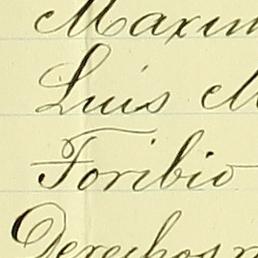 Maxim
Luis M
Toribio
Derechos